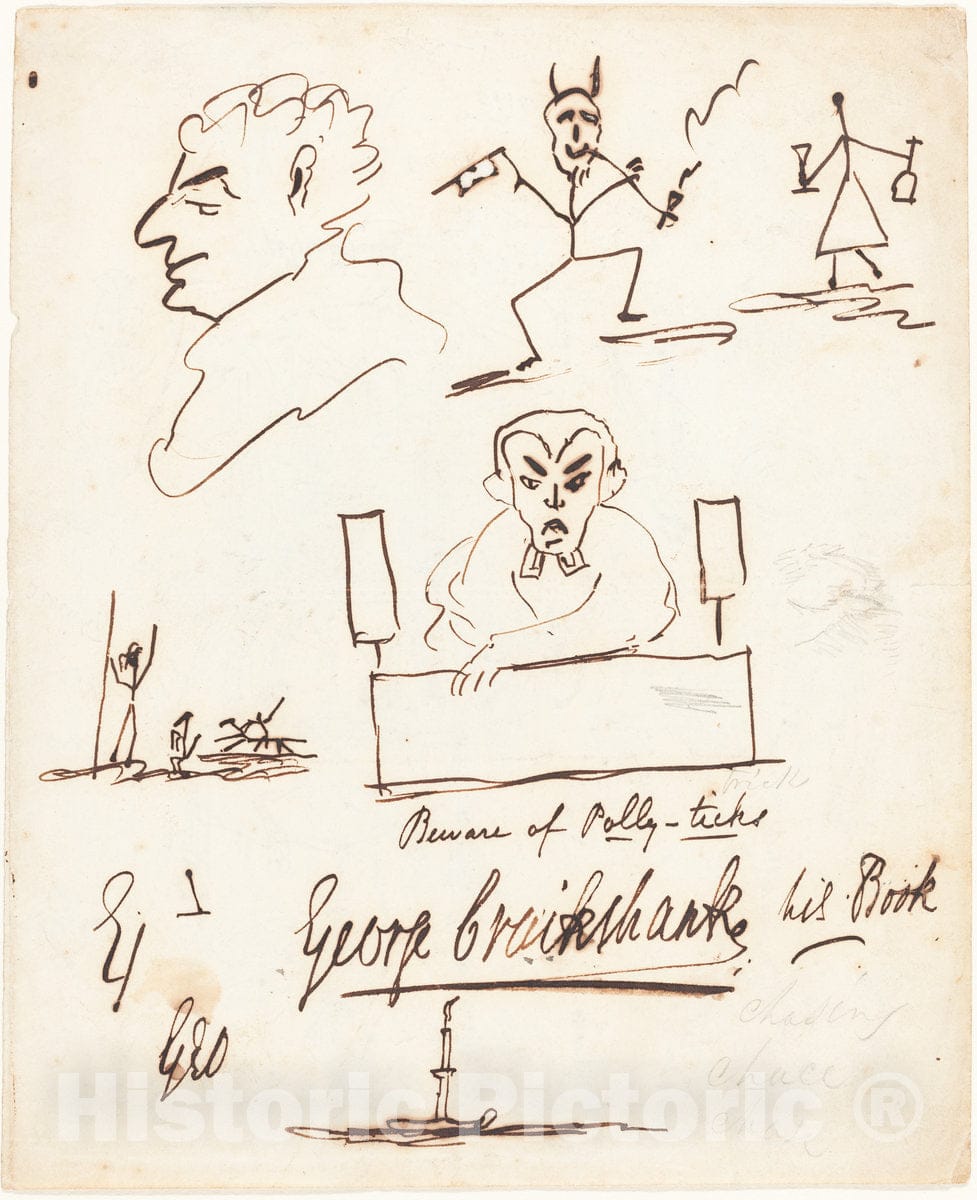 trick
Beware of Polly-ticks
George Cruikshank his Book
Geo
chasing
chace
Historic Pictoric ®